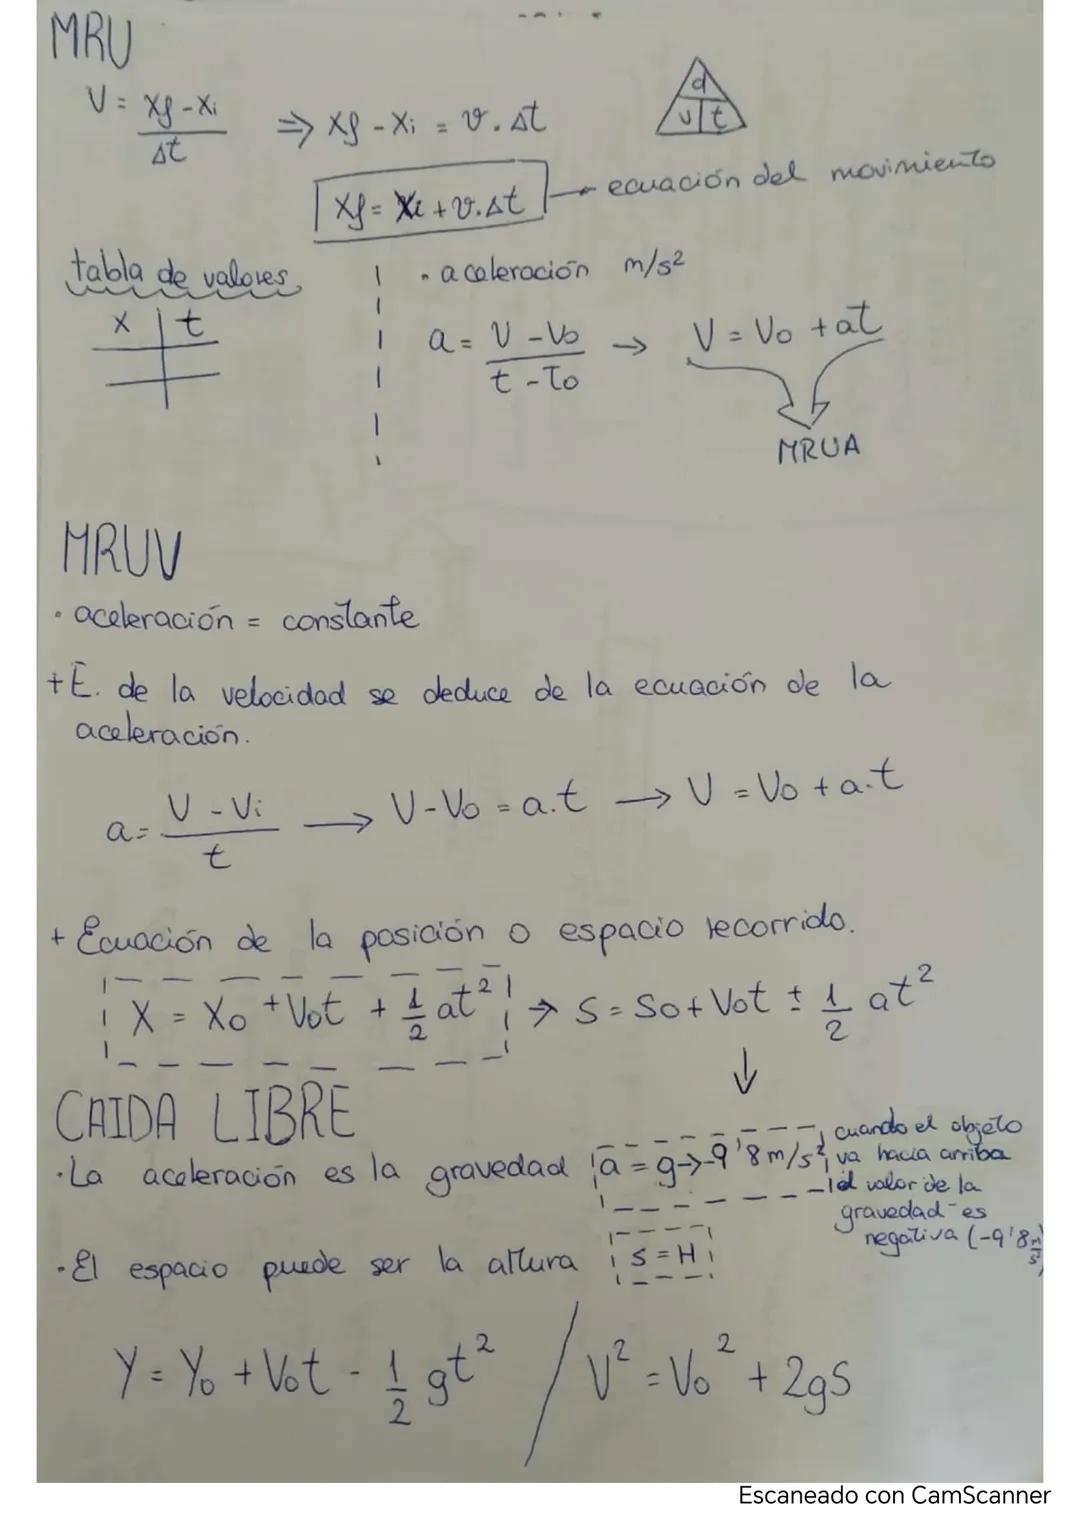 MRU
V = Xf - Xi / Δt ⇒ Xf - Xi = v . Δt
d
v | t
Xf = Xi + v.Δt ← ecuación del movimiento
tabla de valores
x | t
· aceleración m/s²
a = V - Vo / t - To → V = Vo + at
MRUA
MRUV
· aceleración = constante
+ E. de la velocidad se deduce de la ecuación de la
aceleración.
a = V - Vi / t → V - Vo = a.t → V = Vo + a.t
+ Ecuación de la posición o espacio recorrido.
X = Xo + Vot + 1/2 at² → S = So + Vot ± 1/2 at²
↓
CAIDA LIBRE
· La aceleración es la gravedad a = g → -9'8 m/s²
cuando el objeto
va hacia arriba
el valor de la
gravedad es
negativa (-9'8 m/s)
· El espacio puede ser la altura S = H
Y = Yo + Vot - 1/2 gt² / V² = Vo² + 2gS
Escaneado con CamScanner